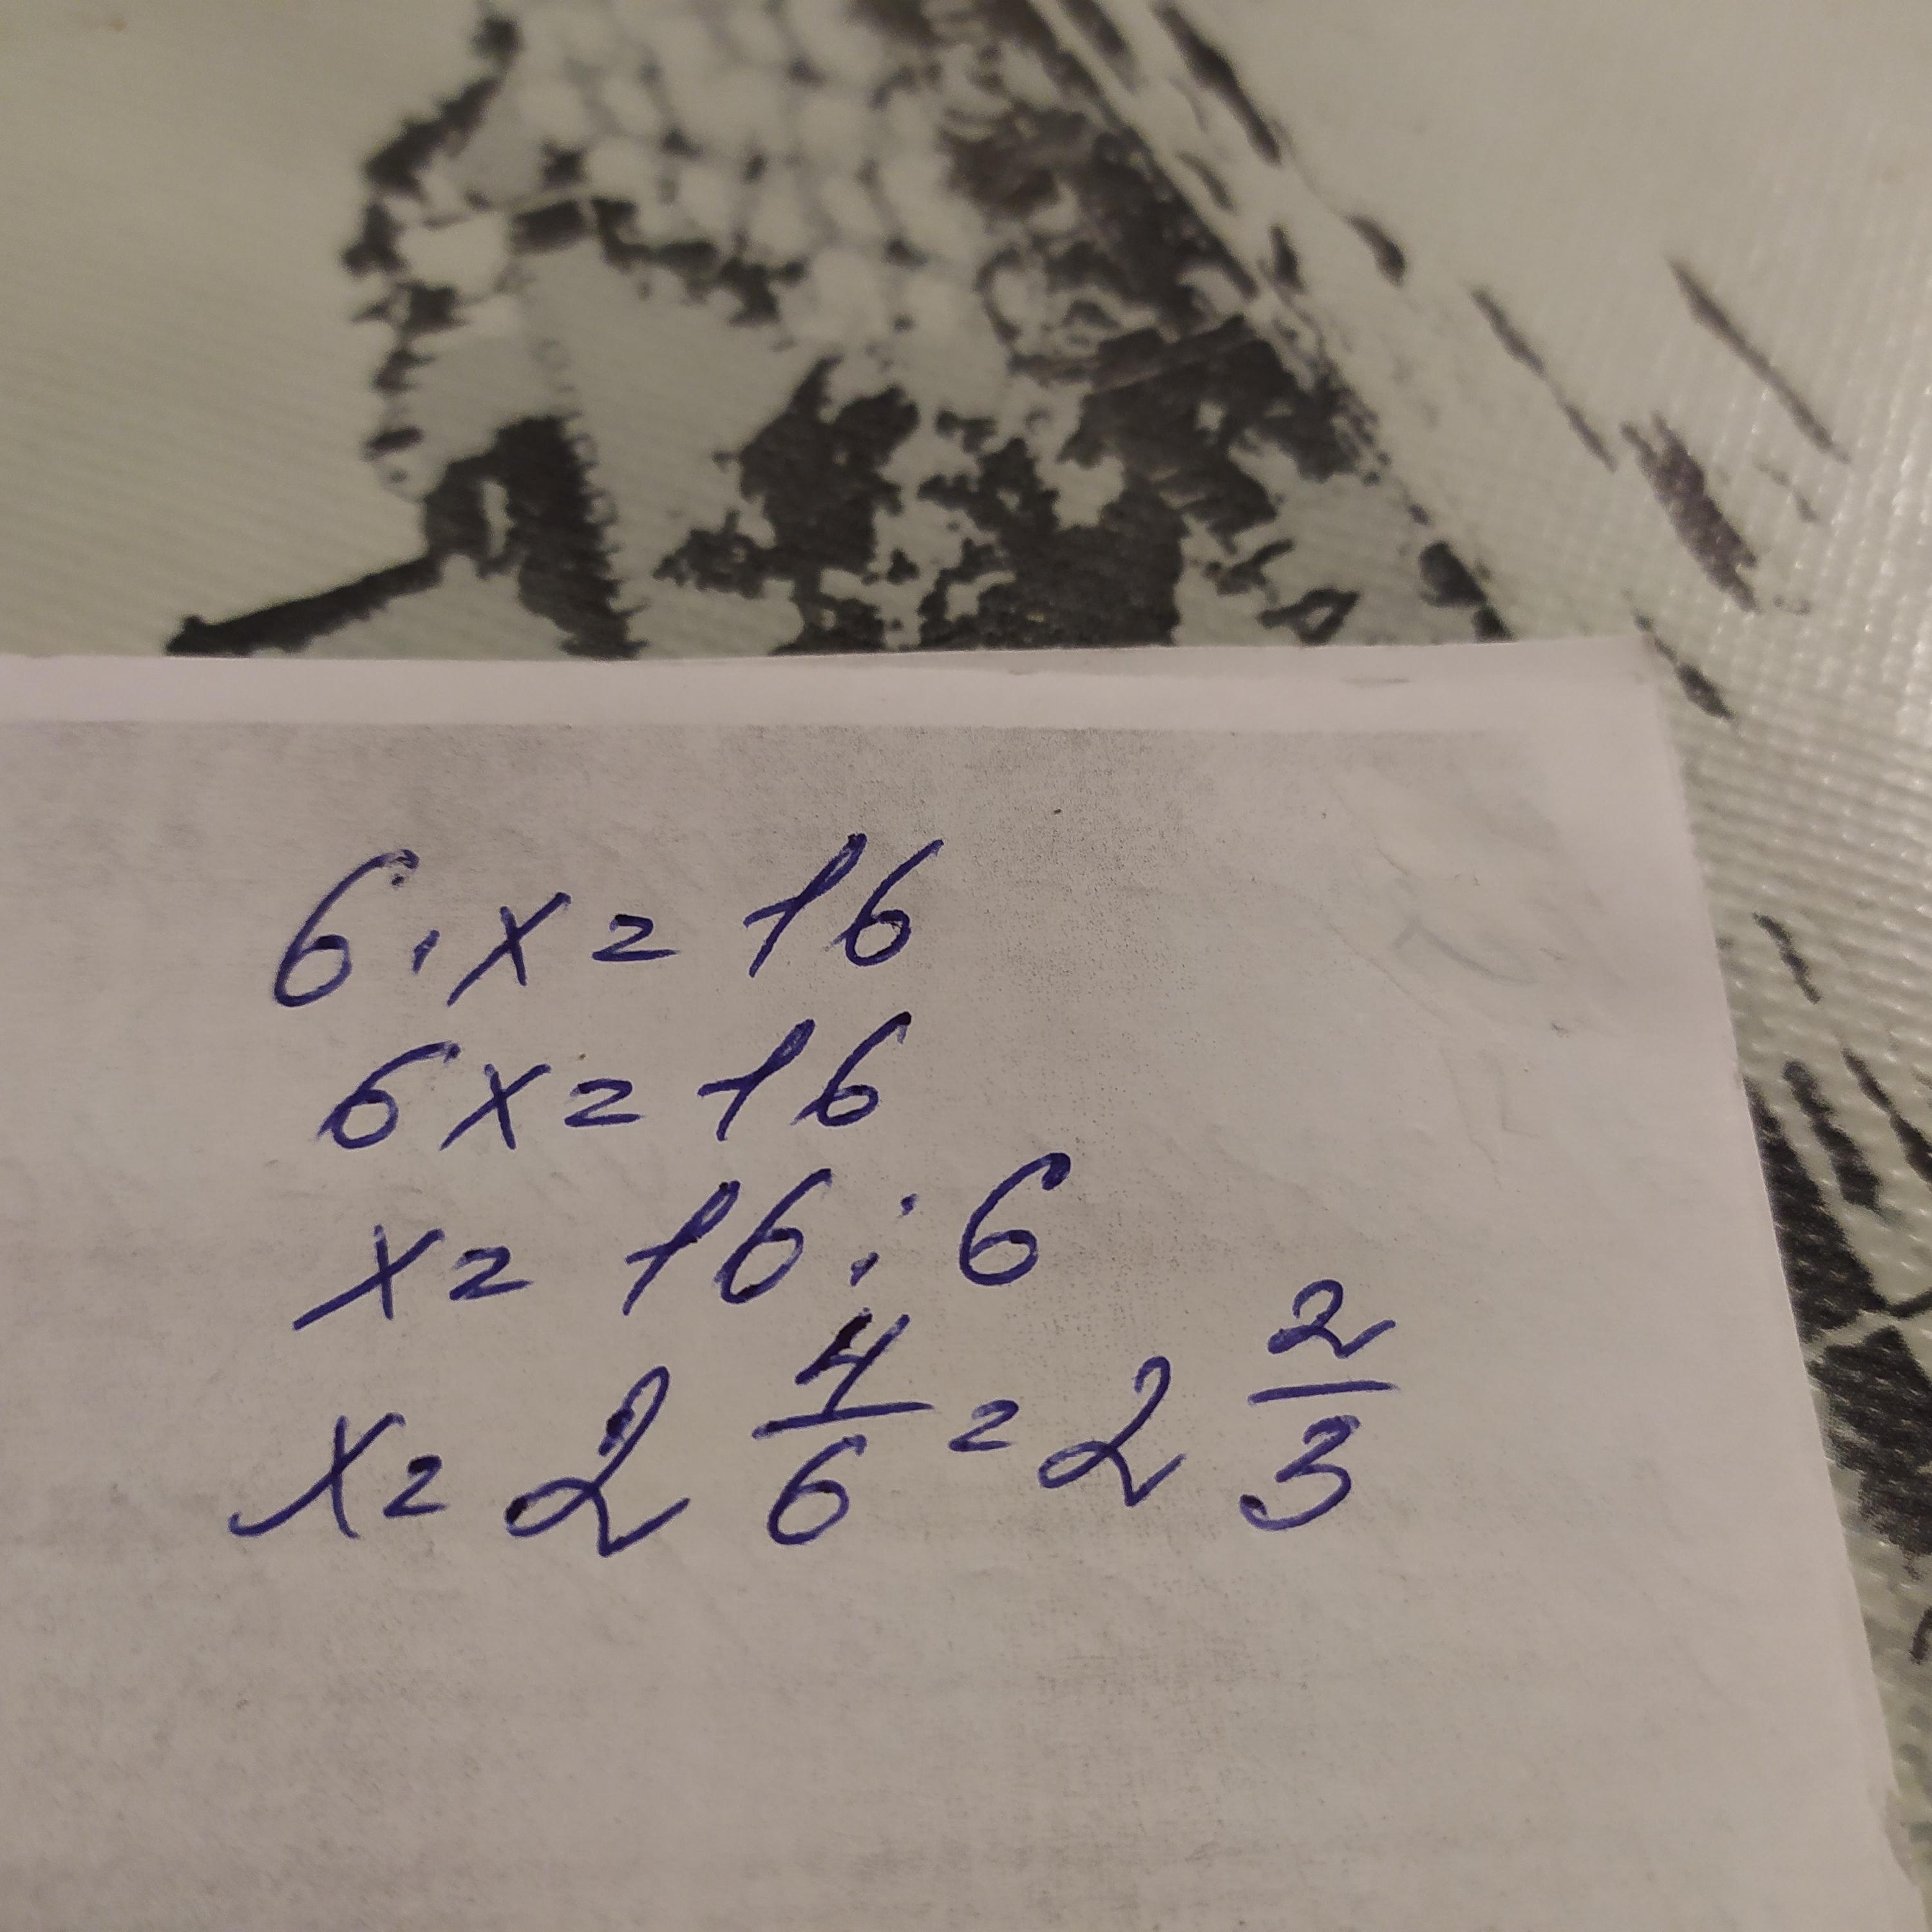 6·x=16
6x=16
x=16:6
x=2 4/6=2 2/3